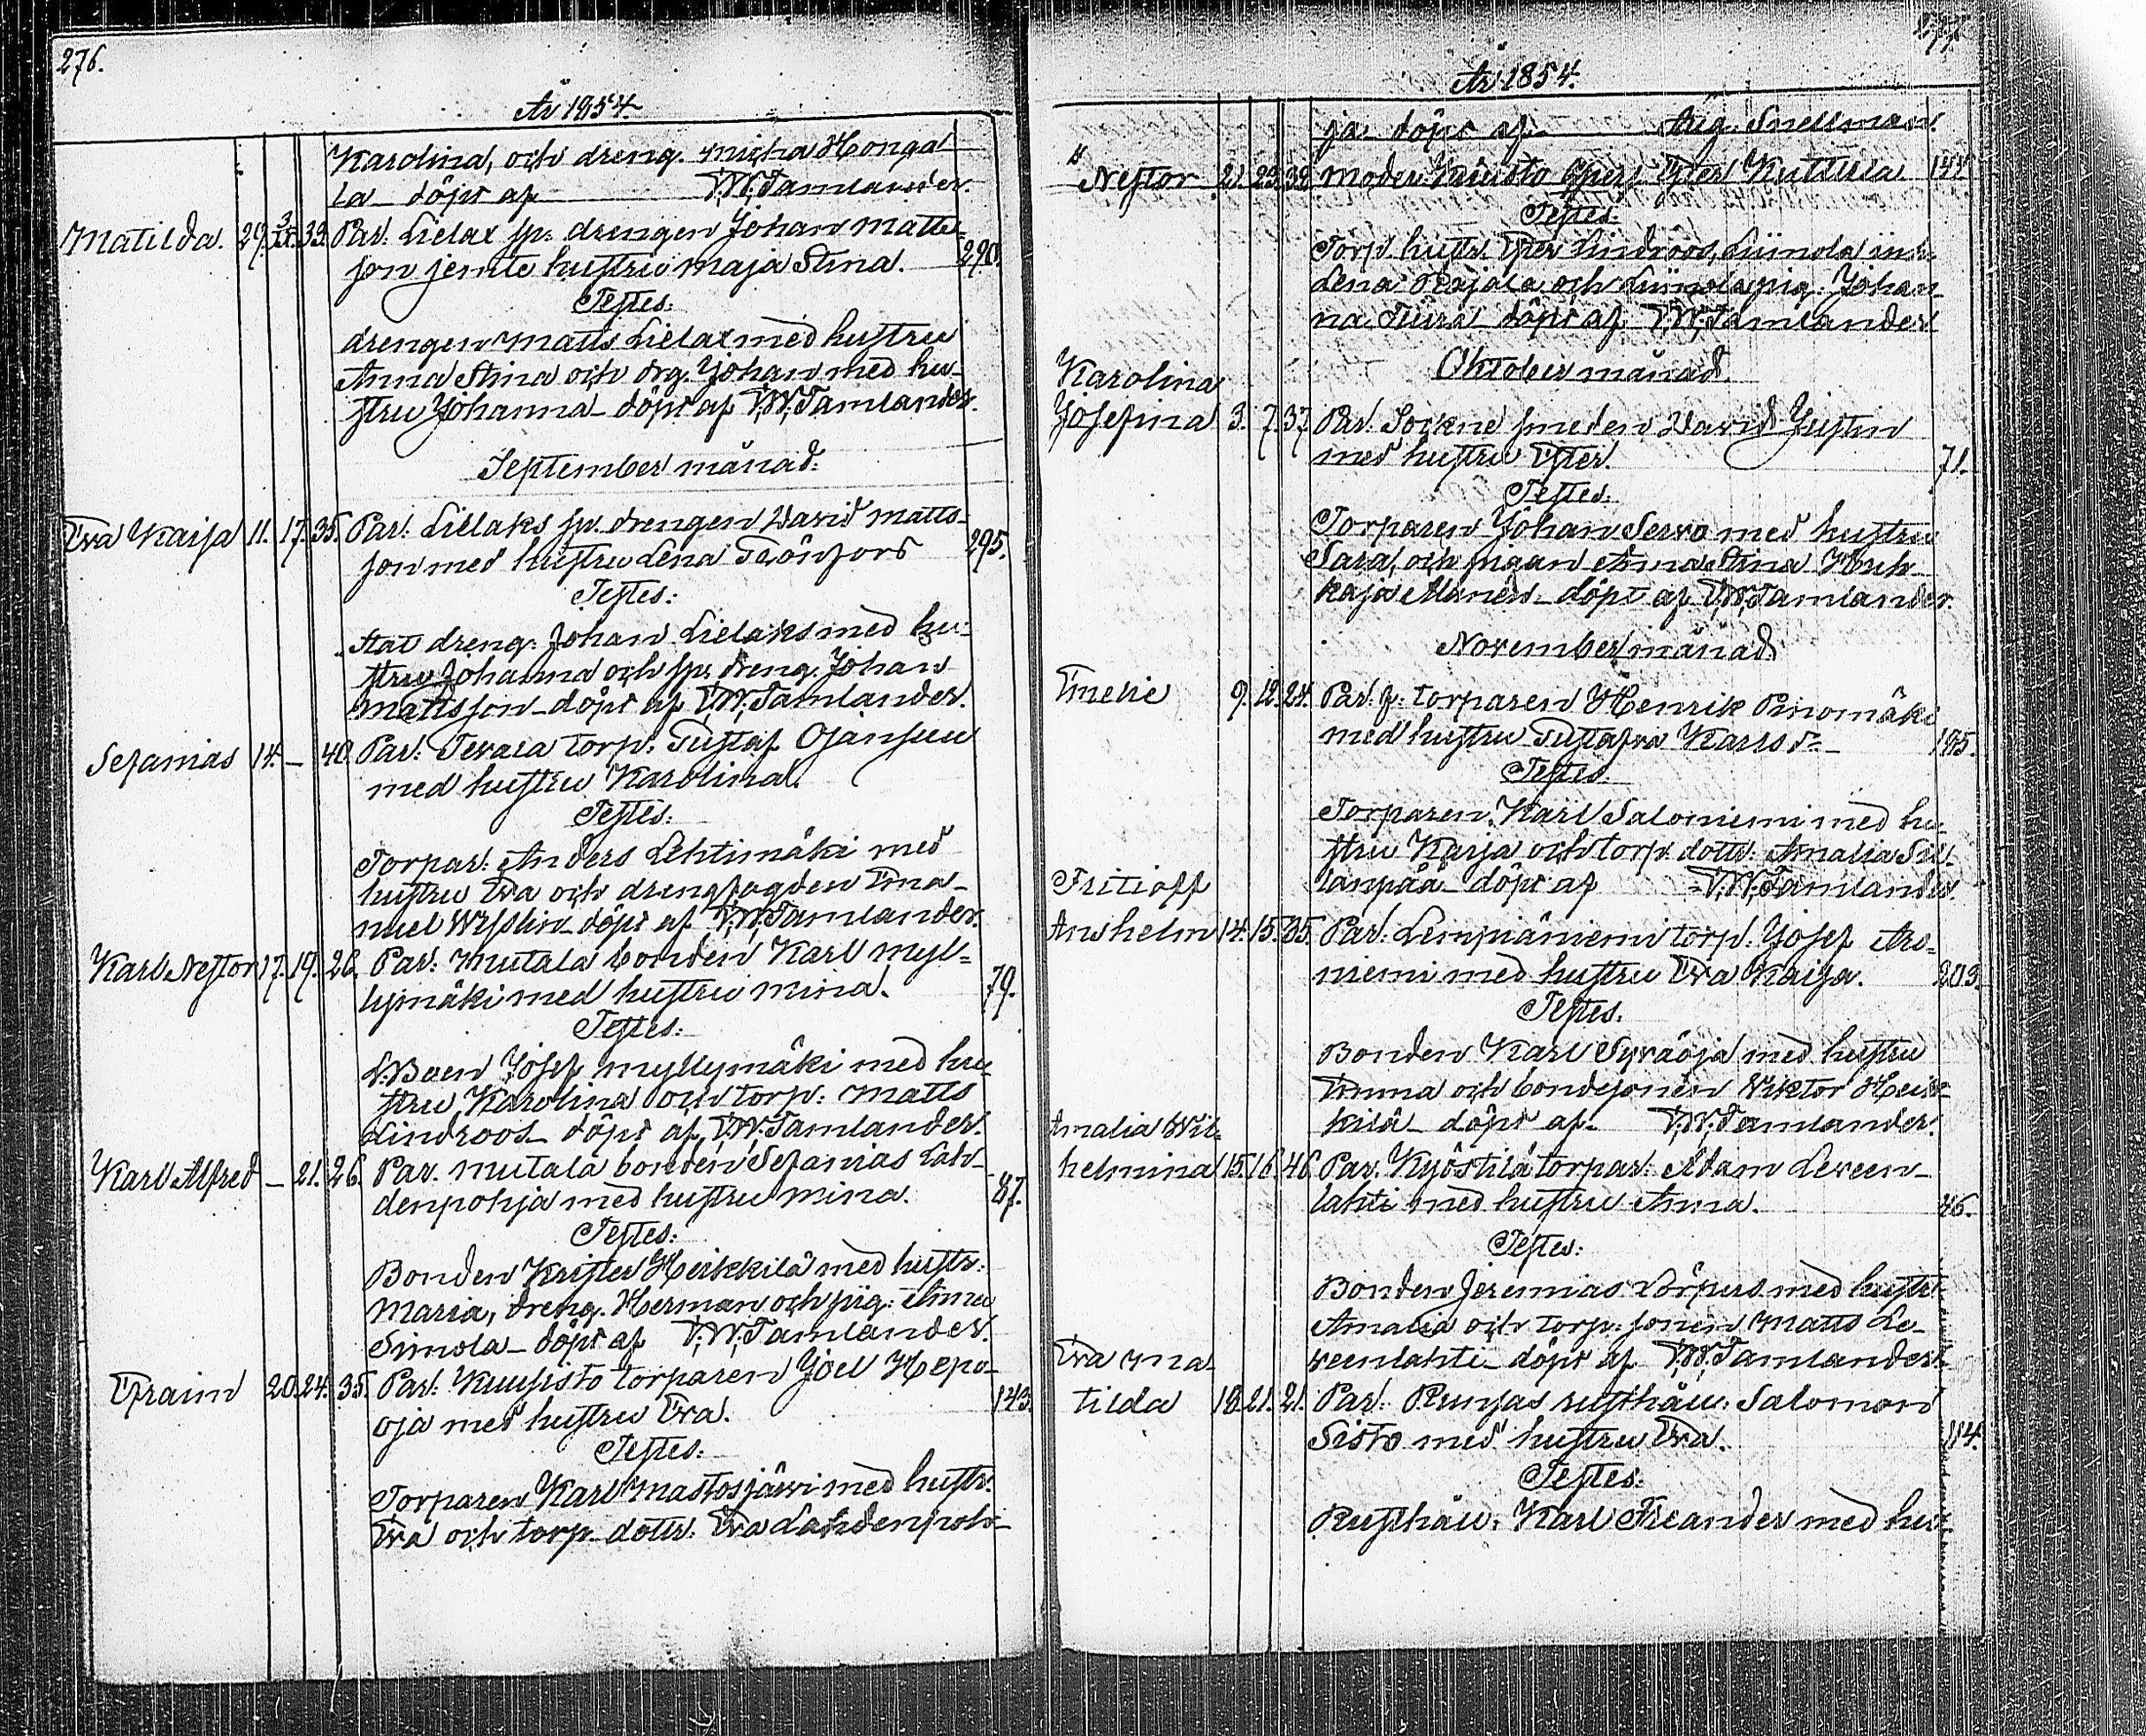 276.
År 1854.
Karolina, och dreng. Micha Honga
la döpt af T.W. Tamlander.
Matilda. 29. 3/IX. 33. Par. Lielax sp. drengen Johan Matts-
son jemte hustru Maja Stina. 290.
Testes:
drengen Matts Lielax med hustru
Anna Stina och drg. Johan med hu-
stru Johanna döpt af T.W. Tamlander.
September månad:
Eva Kaisa 11. 17. 35. Par: Lielaks sp. drengen David Matts-
son med hustru Lena Grönfors 295.
Testes:
Stat dreng: Johan Lielaks med hu-
stru Johanna och sp. dreng. Johan
Mattsson döpt af T.W. Tamlander.
Sefanias 14. — 40. Par: Tevala torp: Gustaf Ojansuu
med hustru Karolina.
Testes:
Torpar: Anders Lehtimäki med
hustru Eva och drengfogden Ema-
nuel Wesslin döpt af T.W. Tamlander.
Karl Nestor 17. 19. 26. Par: Mutala bonden Karl Myl-
lymäki med hustru Mina. 79.
Testes:
Josef Myllymäki med hu-
stru Karolina och torp: Matts
Lindroos döpt af T.W. Tamlander.
Karl Alfred — 21. 26. Par. Mutala bonden Sefanias Lah-
denpohja med hustru Mina. 87.
Testes:
Bonden Krister Heikkilä med hustr:
Maria, dreng. Herman och pig: Anna
Simola döpt af T.W. Tamlander.
Efraim 20. 24. 35. Par: Kuusisto torparen Joel Hepo-
oja med hustru Eva. 143.
Testes:
Torparen Karl Mastosjärvi med hustr.
Eva och torp. dottr. Eva Lahdenpoh-
277.
År 1854.
ja döpt af Aug. Snellman.
Nestor 21. 23. 33. Modern: Kuusisto Ester Kuttila 144
Testes:
Torp. hustr. Ester Lindroos, Liinola
Lena Rajala och Liinola pig. Johan-
na döpt af T.W. Tamlander
Oktober månad.
Karolina
Josefina 3. 7. 37. Par. Sockne smeden David Justin
med hustru Ester. 71.
Testes:
Torparen Johan Servo med hustru
Sara, och pigan Anna Stina Huh-
kaja döpt af T.W. Tamlander.
November månad.
Emelie 9. 12. 24. Par: f: torparen Henrik Pinomäki
med hustru Gustafva Karls dr 185.
Testes.
Torparen Karl Saloniemi med hu-
stru Kajsa och torp. dottr: Amalia Sil-
lanpää döpt af T.W. Tamlander.
Fritioff
Anshelm 14. 15. 35. Par: Lempiäniemi torp. Josef Aro-
niemi med hustru Eva Kaisa. 203.
Testes.
Bonden Karl Syväoja med hustru
Emma och bondesonen Viktor Heik-
kilä döpt af T.W. Tamlander.
Amalia Wil-
helmina 15. 16. 46. Par. Kyöstilä torpar. Adam Leveen-
lahti med hustru Anna. 46.
Testes:
Bonden Jeremias Pörpus med hustr
Amalia och torp. sonen Matts Le-
veenlahti döpt af T.W. Tamlander.
Eva Ma-
tilda 18. 21. 21. Par: Runsas rusthåll: Salomon
Sisto med hustru Eva. 114.
Testes:
Rusthåll: Karl Freander med hu-